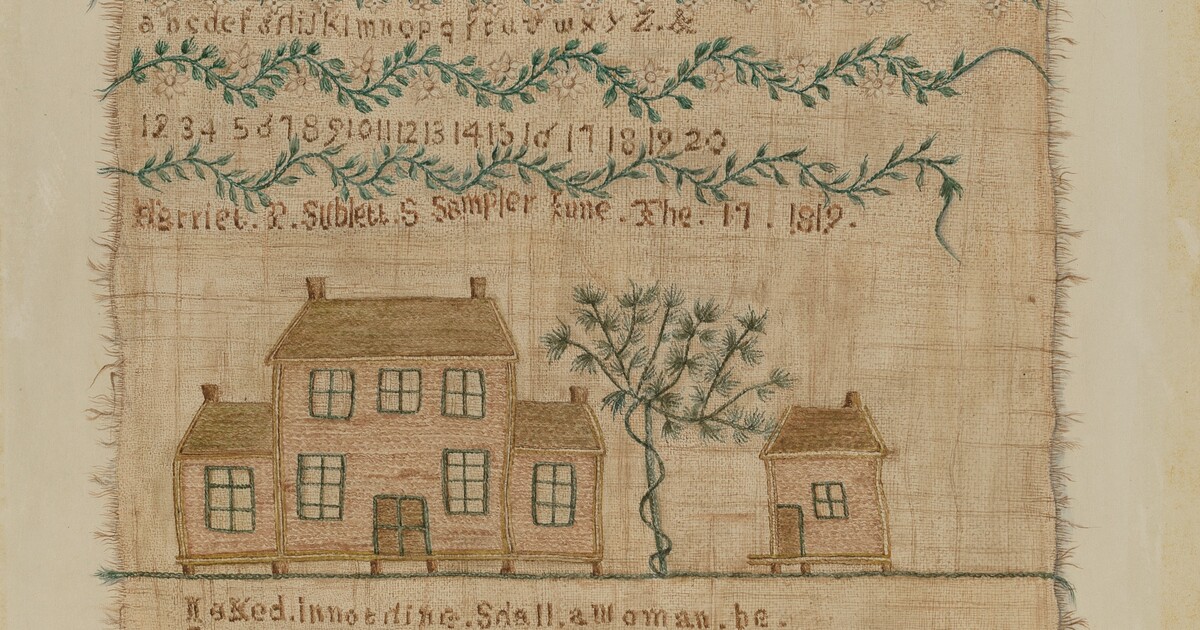 a b c d e f g h i j k l m n o p q r s t u v w x y z . &
1 2 3 4 5 6 7 8 9 10 11 12 13 14 15 16 17 18 19 20
Harriet. P. Sublett. S Sampler June. The. 17. 1819.
a Woman. be.